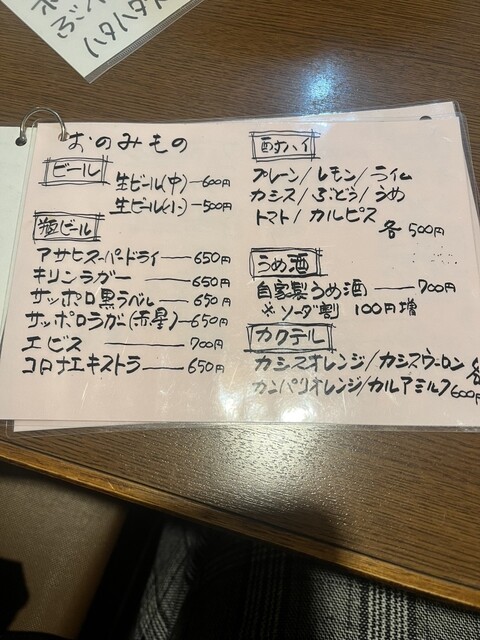 おのみもの
ビール
生ビール(中)―600円
生ビール(小)―500円
瓶ビール
アサヒスーパードライ―650円
キリンラガー――650円
サッポロ黒ラベル―650円
サッポロラガー(赤星)―650円
エビス――700円
コロナエキストラ――650円
酎ハイ
プレーン/レモン/ライム
カシス/ぶどう/うめ
トマト/カルピス
各500円
うめ酒
自家製うめ酒――700円
※ソーダ割 100円増
カクテル
カシスオレンジ/カシスウーロン 各
カンパリオレンジ/カルアミルク 600円
ハタハタ